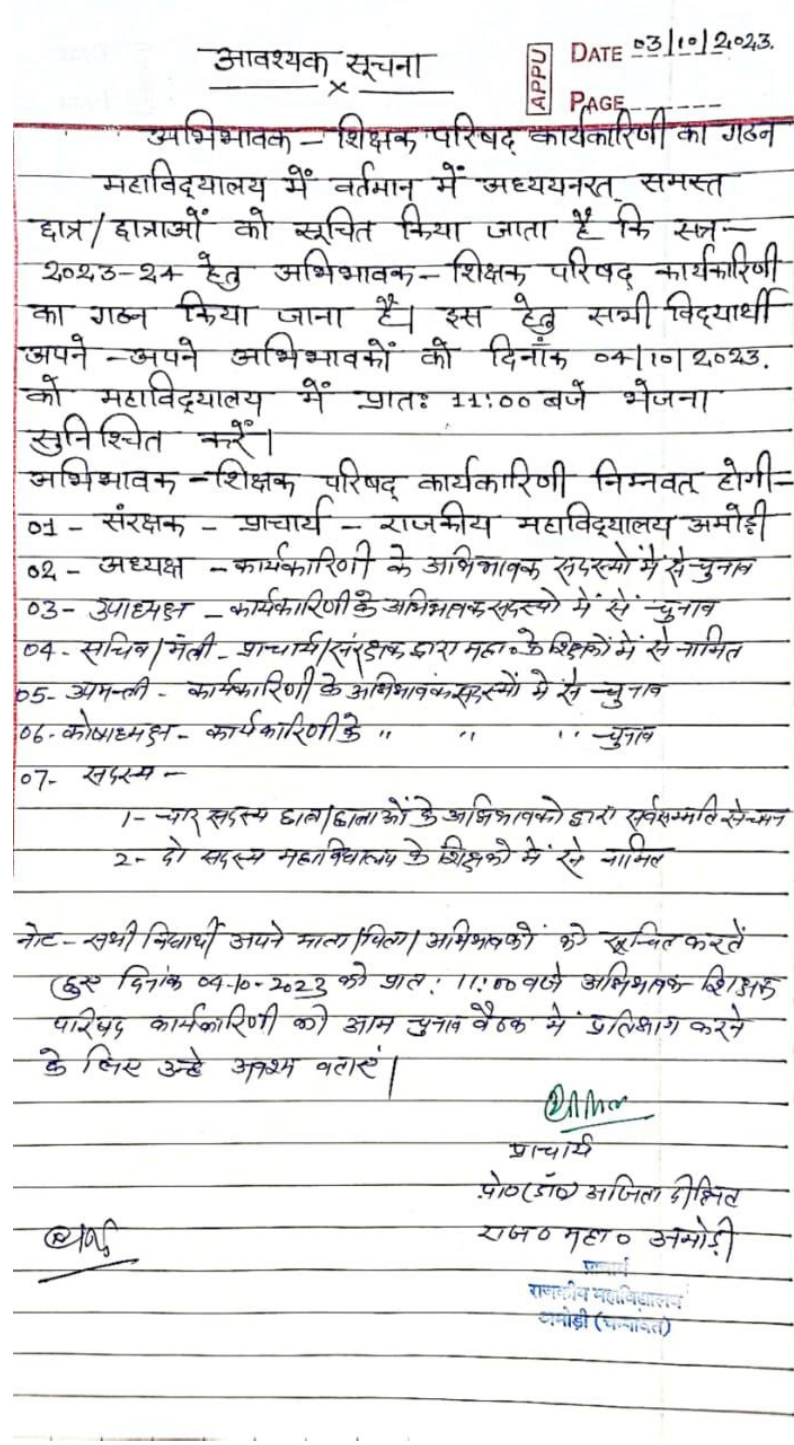 आवश्यक सूचना
x
APPU
DATE 03/10/2023.
PAGE
अभिभावक – शिक्षक परिषद् कार्यकारिणी का गठन
महाविद्यालय में वर्तमान में अध्ययनरत् समस्त
छात्र/छात्राओं को सूचित किया जाता है कि सत्र –
2023-24 हेतु अभिभावक – शिक्षक परिषद् कार्यकारिणी
का गठन किया जाना है। इस हेतु सभी विद्यार्थी
अपने – अपने अभिभावकों को दिनाँक 04/10/2023.
को महाविद्यालय में प्रातः 11:00 बजे भेजना
सुनिश्चित करें।
अभिभावक – शिक्षक परिषद् कार्यकारिणी निम्नवत् होगी –
01 – संरक्षक – प्राचार्य – राजकीय महाविद्यालय अमोड़ी
02 – अध्यक्ष – कार्यकारिणी के अभिभावक सदस्यों में से चुनाव
03 – उपाध्यक्ष – कार्यकारिणी के अभिभावक सदस्यों में से चुनाव
04 - सचिव/मंत्री - प्राचार्य/संरक्षक द्वारा महा० के शिक्षकों में से नामित
05 - उपमन्त्री - कार्यकारिणी के अभिभावक सदस्यों में से चुनाव
06 - कोषाध्यक्ष - कार्यकारिणी के " " " चुनाव
07 - सदस्य –
1 – चार सदस्य छात्र/छात्राओं के अभिभावकों द्वारा सर्वसम्मति से चयन
2 - दो सदस्य महाविद्यालय के शिक्षकों में से नामित
नोट – सभी विद्यार्थी अपने माता/पिता/अभिभावकों को सूचित करते
हुए दिनांक 04-10-2023 को प्रात: 11:00 बजे अभिभावक शिक्षक
परिषद कार्यकारिणी की आम चुनाव बैठक में प्रतिभाग करने
के लिए उन्हें अवश्य बताएं।
प्राचार्य
प्रो०(डॉ०) अजिता दीक्षित
राज० महा० अमोड़ी
प्राचार्य
राजकीय महाविद्यालय
अमोड़ी (चम्पावत)